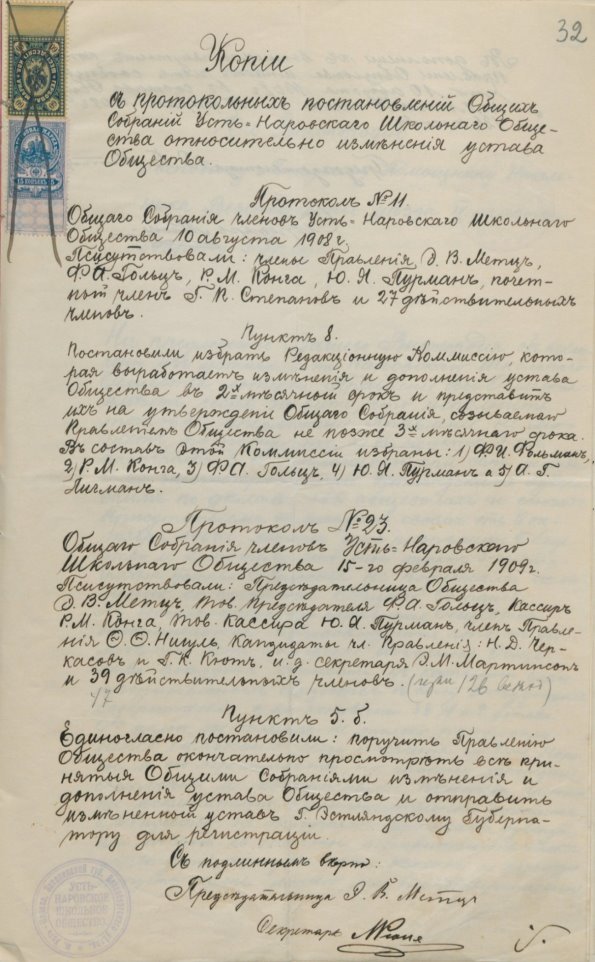 32
Копіи
съ протокольныхъ постановленій Общихъ
Собраній Усть-Наровскаго Школьнаго Обще-
ства относительно измѣненія устава
Общества.
Протоколъ № 11.
Общаго Собранія членовъ Усть-Наровскаго Школьнаго
Общества 10 августа 1908 г.
Присутствовали: члены Правленія, Э. В. Метцъ,
Ф. А. Гольцъ, Р. М. Конга, Ю. Я. Пурманъ, почет-
ный членъ Г. К. Степановъ и 27 дѣйствительныхъ
членовъ.
Пунктъ 8.
Постановили избрать Редакціонную Коммиссію, кото-
рая выработаетъ измѣненія и дополненія устава
Общества въ 2х мѣсячный срокъ и представитъ
ихъ на утвержденіе Общаго Собранія, созываемаго
Правленіемъ Общества не позже 3х мѣсячнаго срока.
Въ составъ этой Коммиссіи избраны: 1) Ф. И. Фольманъ,
2) Р. М. Конга, 3) Ф. А. Гольцъ, 4) Ю. Я. Пурманъ и 5) А. Г.
Личманъ.
Протоколъ № 23.
Общаго Собранія членовъ Усть-Наровскаго
Школьнаго Общества 15-го февраля 1909 г.
Присутствовали: Предсѣдательница Общества
Э. В. Метцъ, тов. Предсѣдателя Ф. А. Гольцъ, Кассиръ
Р. М. Конга, тов. Кассира Ю. Я. Пурманъ, членъ Правле-
нія Кандидаты чл. Правленія: Н. Д. Чер-
касовъ и Г. К. Кютъ, и. д. секретаря Э. М. Мартинсонъ
и 39 дѣйствительныхъ членовъ.
47
Пунктъ 5. б.
Единогласно постановили: поручить Правленію
Общества окончательно просмотрѣть всѣ при-
нятыя Общими Собраніями измѣненія и
дополненія устава Общества и отправить
измѣненной уставъ Г. Эстляндскому Губерна-
тору для регистраціи.
Съ подлиннымъ вѣрно:
Предсѣдательница Э. В. Метцъ
Секретарь
УСТЬ-
НАРОВСКОЕ
ШКОЛЬНОЕ
ОБЩЕСТВО